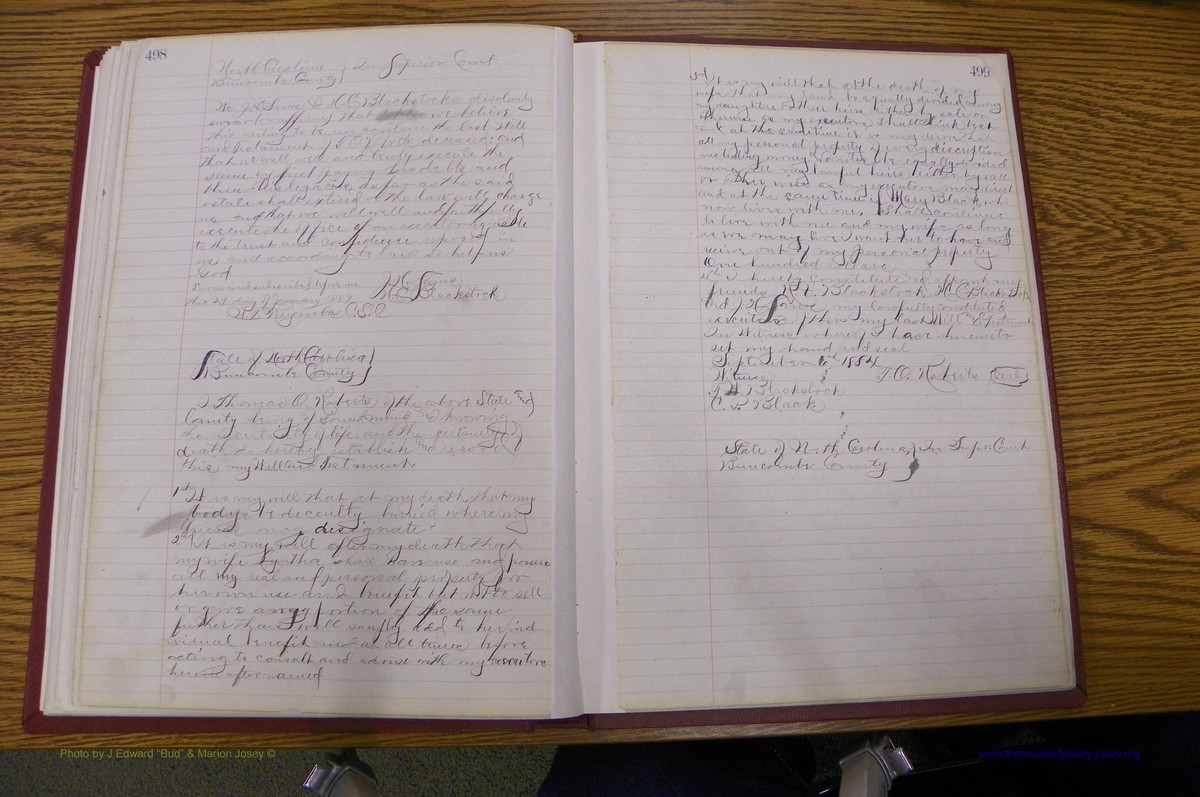 498
North Carolina } In Superior Court
Buncombe County }
We J. H. & H. C. Blackstock do solemnly
swear that we believe
this writing to be and contain the last Will
and Testament of T. O. Roberts deceased and
that we will well and truly execute the
same by first paying his debts and
then his legacies as far as the said
estate shall extend or the law will charge
us and that we will well and faithfully
execute the office of an executor agreeable
to the trust and confidence reposed in
us and according to law so help us
God
Sworn and subscribed before me
the 23 day of January 1889
H. C. Blackstock
Reynolds C.S.C
State of North Carolina }
Buncombe County }
I Thomas O. Roberts of the above State and
County being of sound mind and knowing
the uncertainty of life and the certainty of
death do hereby establish and
this my Will and Testament
1st It is my will that at my death that my
body be decently buried where my
friends may designate
2nd It is my will after my death that
my wife Cyntha shall have use and possess
all my real and personal property for
her own use and benefit but not to sell
or give away any portion of the same
further than will simply add to her ind-
vidual benefit and at all times before
acting to consult and advise with my executors
herein after named
499
3rd It is my will that at the death of my
wife that my lands be equally divided among
my daughters or their heirs either by sale or
otherwise as my executors shall think best
and at the same time it is my desire that
all my personal property of every discription
including money on notes be equally divided
among all my lawful heirs either by sale
or other wise as my executors may direct
and at the same time if Mary Black who
now lives with me, shall continue
to live with me and my wife as long
as we may live I want her to have and
receive out of my personal property
One hundred dollars
4th I hereby constitute and appoint my
friends Blackstock H. C. Blackstock
and J. H. my lawfully constituted
executors of this my last Will & Testament
In Witness whereof I have hereunto
set my hand and seal
September 1884
Witness T. O. Roberts (Seal)
Blackstock
C. P. Black
State of North Carolina } In Supr. Court
Buncombe County }
Photo by J Edward "Bud" & Marion Josey ©
www.thehouseofjossey-josey.org